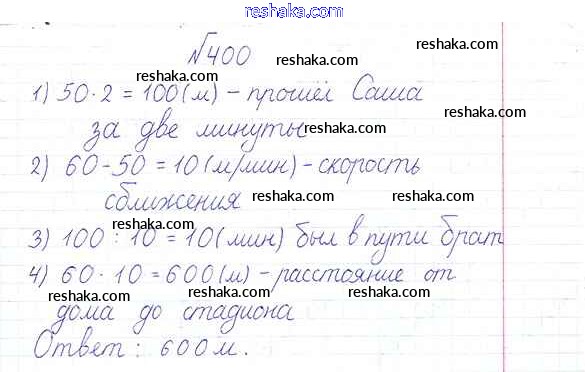 reshaka.com
№400
reshaka.com reshaka.com
reshaka.com
1) 50·2 = 100 (м) - прошёл Саша
reshaka.com
за две минуты reshaka.com
2) 60-50 = 10 (м/мин) - скорость
reshaka.com reshaka.com
сближения
reshaka.com reshaka.com
3) 100 : 10 = 10 (мин) был в пути брат
reshaka.com
4) 60 · 10 = 600 (м) - расстояние от
reshaka.com reshaka.com
дома до стадиона
reshaka.com
Ответ: 600 м.
reshaka.com